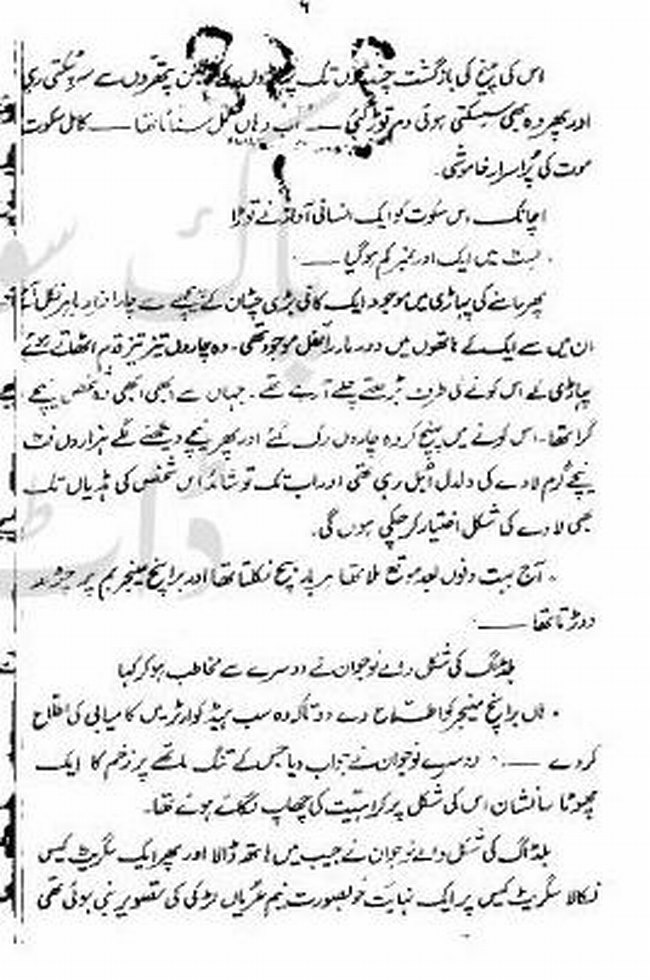 ۶
اس کی چیخ کی بازگشت چند لمحوں تک پہاڑوں کی پتھروں سے سر پٹکتی رہی
اور پھر وہ بھی سسکتی ہوئی دم توڑ گئی — اب وہاں مکمل سناٹا تھا — کامل سکوت
موت کی پُراسرار خاموشی۔
اچانک اس سکوت کو ایک انسانی آواز نے توڑا
۔ لسٹ میں ایک اور نمبر کم ہو گیا —۔
پھر سامنے کی پہاڑی میں موجود ایک کافی بڑی چٹان کے پیچھے سے چار افراد باہر نکل آئے
ان میں سے ایک کے ہاتھوں میں دور مار رائفل موجود تھی۔ وہ چاروں تیز تیز قدم اٹھاتے ہوئے
پہاڑی کے اس کونے کی طرف بڑھتے چلے آ رہے تھے۔ جہاں سے ابھی ابھی وہ شخص نیچے
گرا تھا۔ اس کونے میں پہنچ کر وہ چاروں رک گئے اور پھر نیچے دیکھنے لگے ہزاروں فٹ
نیچے گرم لاوے کی دلدل ابل رہی تھی اور اب تک تو شائد اس شخص کی ہڈیاں تک
بھی لاوے کی شکل اختیار کر چکی ہوں گی۔
۔ آج بہت دنوں بعد موقع ملا تھا ہر بار بچ نکلتا تھا اور برانچ مینجر ہم پر چڑھ
دوڑتا تھا —۔
بلڈاگ کی شکل والے نوجوان نے دوسرے سے مخاطب ہو کر کہا
۔ ہاں برانچ مینجر کو اطلاع دے دو تاکہ وہ سب ہیڈ کوارٹر میں کامیابی کی اطلاع
کر دے —۔ دوسرے نوجوان نے جواب دیا جس کے تنگ ماتھے پر زخم کا ایک
چھوٹا سا نشان اس کی شکل پر کراہیت کی چھاپ لگائے ہوئے تھا۔
بلڈاگ کی شکل والے نوجوان نے جیب میں ہاتھ ڈالا اور پھر ایک سگریٹ کیس
نکالا سگریٹ کیس پر ایک نہایت خوبصورت نیم عریاں لڑکی کی تصویر بنی ہوئی تھی